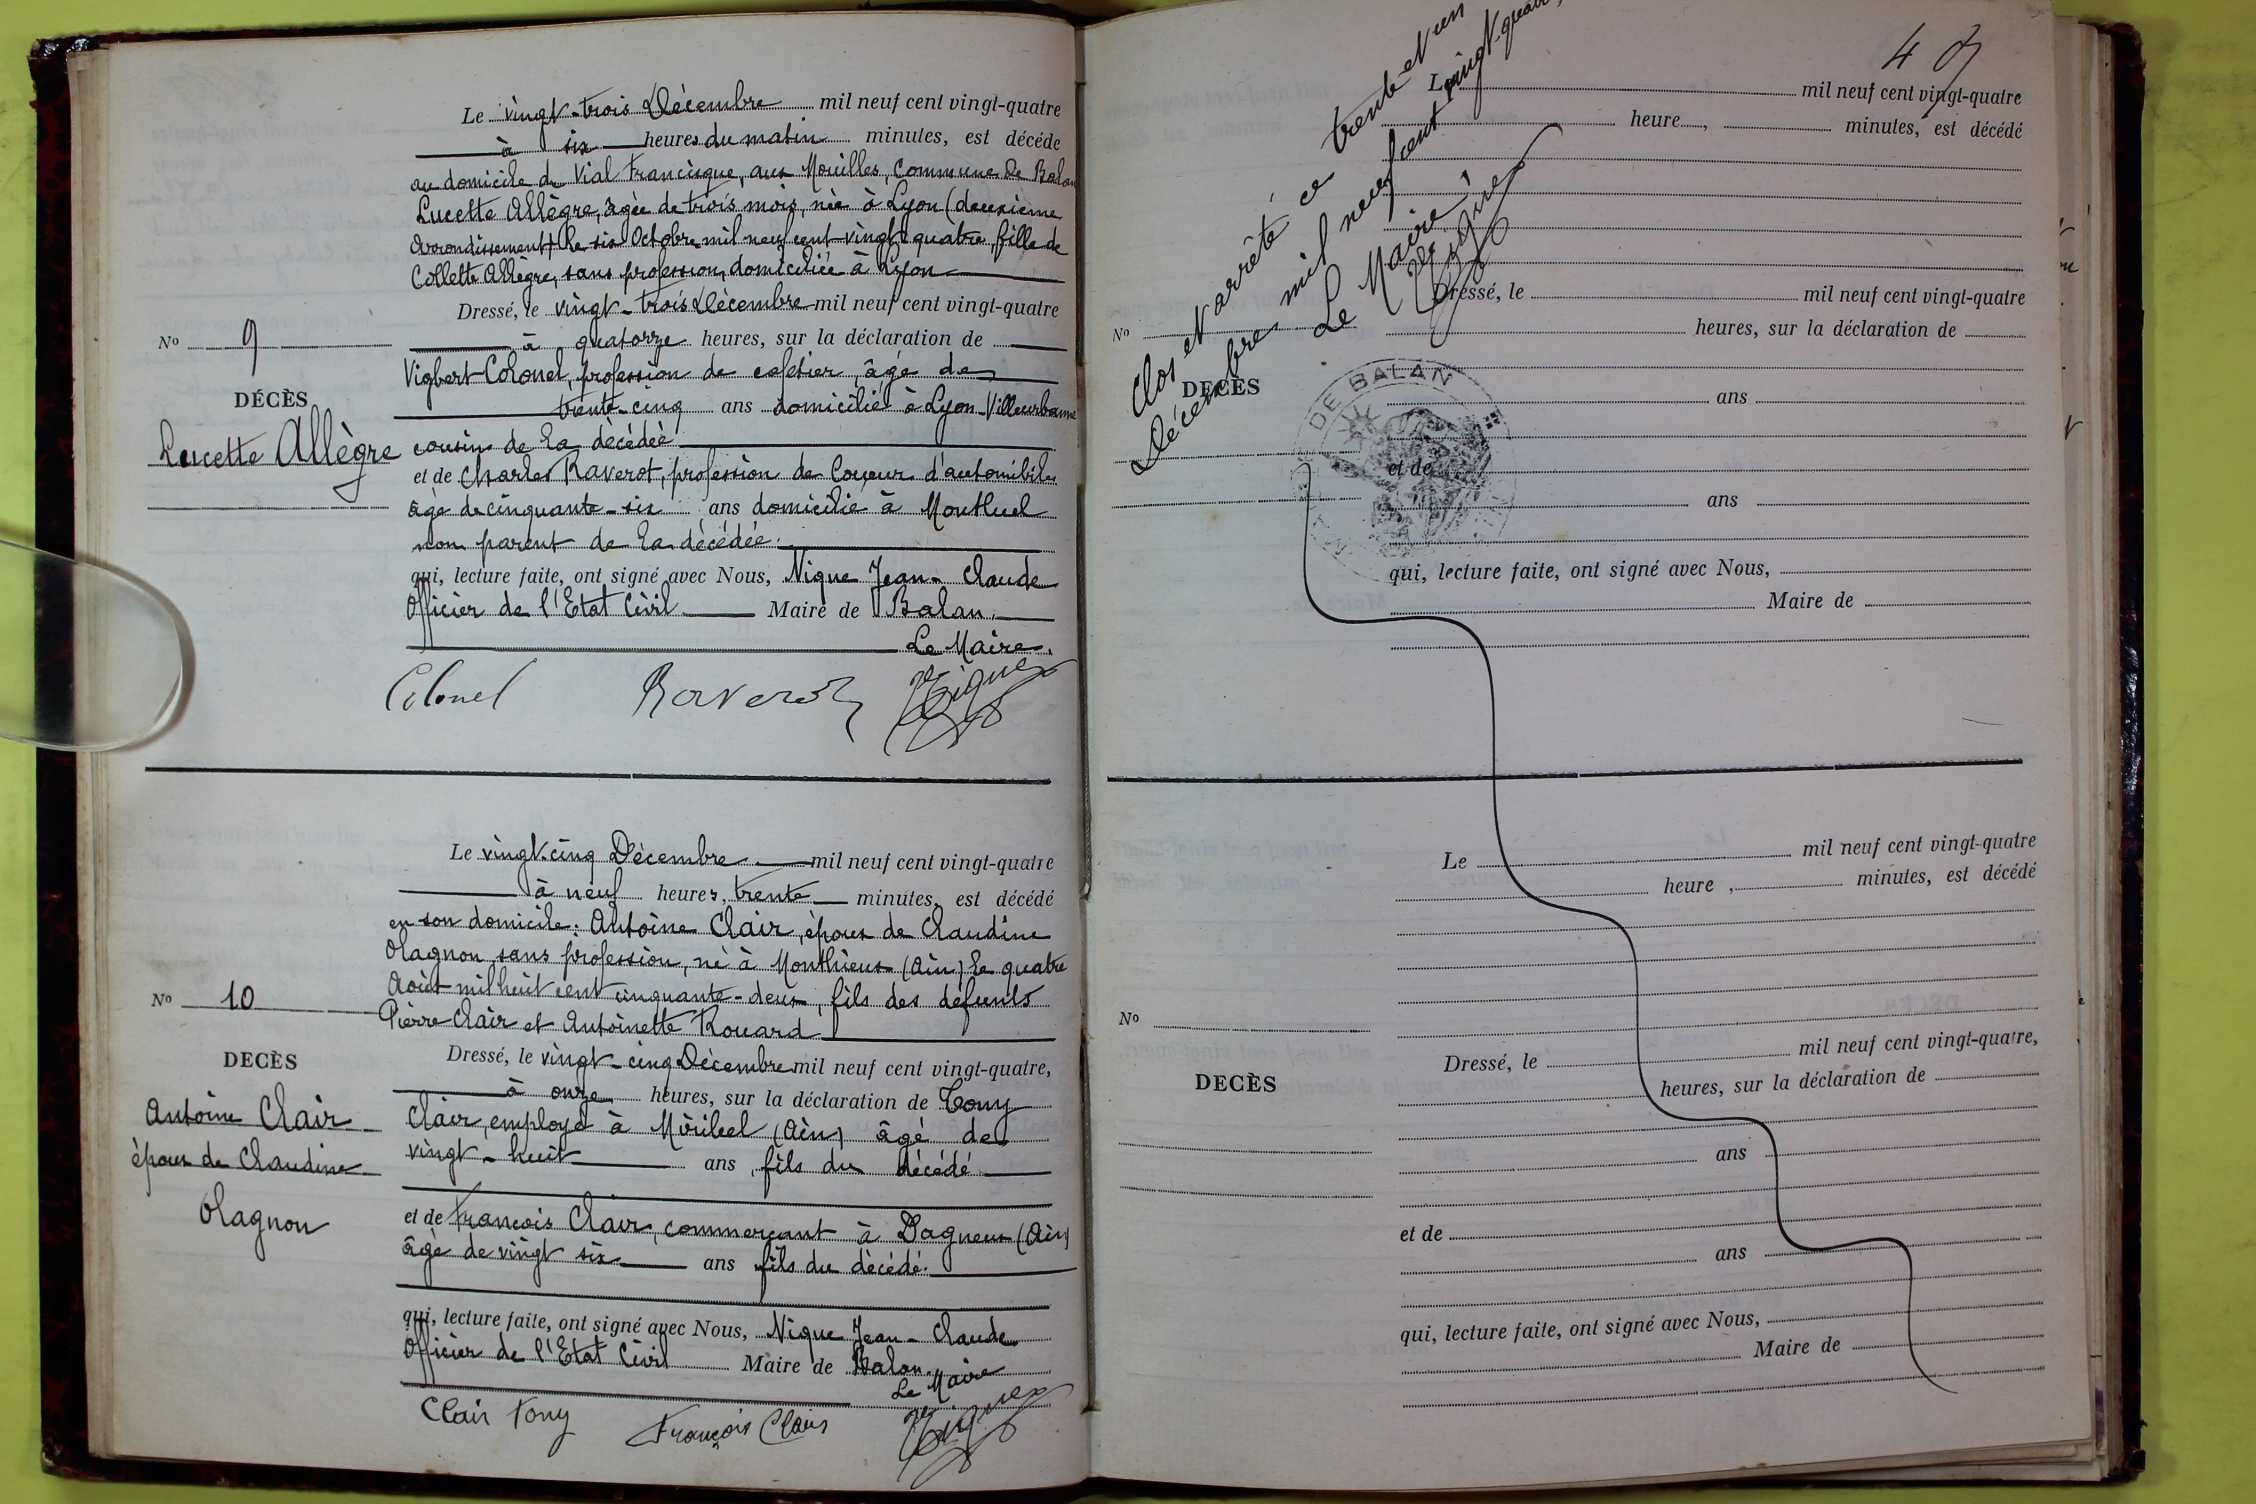 Le vingt-trois Décembre mil neuf cent vingt-quatre
à six heures du matin minutes, est décédé
au domicile de Vial Francisque, aux Mouilles, Commune de Balan
Lucette Allègre, âgée de trois mois, née à Lyon (deuxième
Arrondissement) le six Octobre mil neuf cent vingt quatre, fille de
Collette Allègre, sans profession, domiciliée à Lyon
Dressé, le vingt-trois Décembre mil neuf cent vingt-quatre
No 9
à quatorze heures, sur la déclaration de
Vigbert Colonel, profession de cafetier, âgé de
DÉCÈS
trente-cinq ans domicilié à Lyon-Villeurbanne
Lucette Allègre
cousin de la décédée
et de Charles Raverot, profession de Loueur d'automibiles
âgé de cinquante-six ans domicilié à Montluel
non parent de la décédée.
qui, lecture faite, ont signé avec Nous, Nique Jean-Claude
Officier de l'Etat Civil Maire de Balan.
Le Maire.
Colonel Raverot Nique
Le vingt-cinq Décembre mil neuf cent vingt-quatre
à neuf heures, trente minutes, est décédé
en son domicile: Antoine Clair, époux de Claudine
Olagnon, sans profession, né à Monthieux (Ain) le quatre
Août mil huit cent cinquante-deux, fils des défunts
No 10
Pierre Clair et Antoinette Rouard
Dressé, le vingt-cinq Décembre mil neuf cent vingt-quatre,
DECÈS
à onze heures, sur la déclaration de Tony
Antoine Clair
Clair, employé à Miribel (Ain) âgé de
époux de Claudine
vingt-huit ans fils du décédé
Olagnon
et de François Clair, commerçant à Dagneux (Ain)
âgé de vingt six ans fils du décédé.
qui, lecture faite, ont signé avec Nous, Nique Jean-Claude
Officier de l'Etat Civil Maire de Balan.
Le Maire
Clair Tony François Clair Nique
Clos et arrêté ce trente et un
Décembre mil neuf cent vingt-quatre,
Le Maire,
Nique
Le mil neuf cent vingt-quatre
heure, minutes, est décédé
Dressé, le mil neuf cent vingt-quatre
No
heures, sur la déclaration de
DECÈS
DE BALAN
ans
et de
ans
qui, lecture faite, ont signé avec Nous,
Maire de
Le mil neuf cent vingt-quatre
heure, minutes, est décédé
No
Dressé, le mil neuf cent vingt-quatre,
DECÈS
heures, sur la déclaration de
ans
et de
ans
qui, lecture faite, ont signé avec Nous,
Maire de